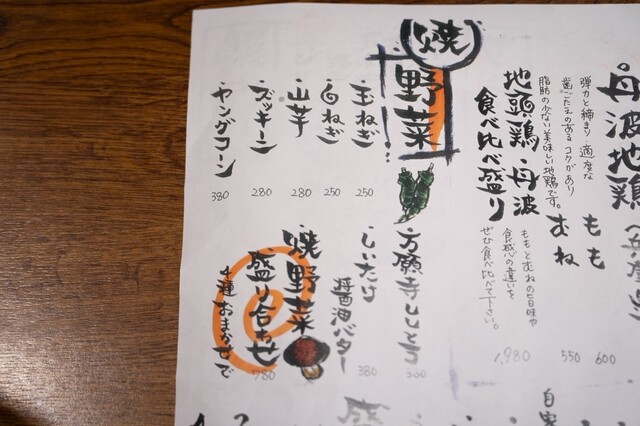 丹波地鶏
弾力と締まり 適度な
歯ごたえのある コクがあり
脂肪の少ない美味しい地鶏です。
もも 600
むね 550
地頭鶏・丹波
食べ比べ盛り
ももとむねの旨味や
食感の違いを
ぜひ食べ比べて下さい。
1,980
焼
野菜
・玉ねぎ 250
・白ねぎ 250
・山芋 280
・ズッキーニ 280
・ヤングコーン 380
・万願寺ししとう 300
・しいたけ
醤油バター 380
焼野菜
盛り合わせ 780
4種おまかせで
盛
自家